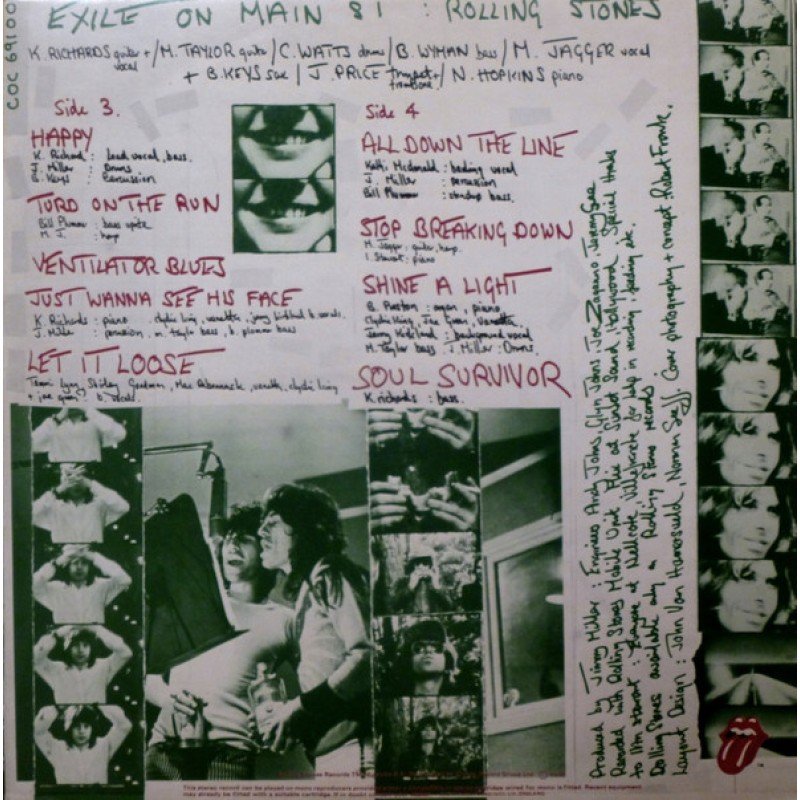 EXILE ON MAIN ST : ROLLING STONES
COC 69100
K. RICHARDS guitar + vocal / M. TAYLOR guitar / C. WATTS drums / B. WYMAN bass / M. JAGGER vocal
+ B. KEYS sax / J. PRICE trumpet + trombone / N. HOPKINS piano
Side 3.
HAPPY
K. Richard : lead vocal, bass.
J. Miller : Drums
B. Keys : Percussion
TURD ON THE RUN
Bill Plummer : bass upright
M. J. : harp
VENTILATOR BLUES
JUST WANNA SEE HIS FACE
K. Richards : piano . clydie king, vanetta, jerry kirkland b. vocals.
J. Miller : percussion, m. taylor bass, b. plummer bass
LET IT LOOSE
Tammi Lynn, Shirley Goodman, Mac Rebennack, vanetta, clydie king
+ joe green b. vocals.
Side 4
ALL DOWN THE LINE
Kathi Mcdonald : backing vocal
J. Miller : percussion
Bill Plummer : standup bass.
STOP BREAKING DOWN
M. Jagger : guitar, harp.
I. Stewart : piano
SHINE A LIGHT
B. Preston : organ, piano
Clydie King, Joe Green, Vanetta,
Jerry Kirkland : background vocal
M. Taylor bass. J. Miller : Drums.
SOUL SURVIVOR
K. richards : bass.
Produced by Jimmy Miller : Engineers Andy Johns, Glyn Johns, Joe Zagarino, Jeremy Gee
Recorded with Rolling Stones Mobile Unit Also at Sunset Sound, Hollywood. Special thanks
to Ian Stewart : Everyone at Nellcote, Villefranche for help in recording, feeding etc.
Rolling Stones available only on Rolling Stones records
Layout Design : John Van Hamersveld, Norman Seeff. Cover photography + concept Robert Frank.
This stereo record can be played on mono reproducers provided
may already be fitted with a suitable cartridge. If in doubt
wired for mono is fitted. Recent equipment